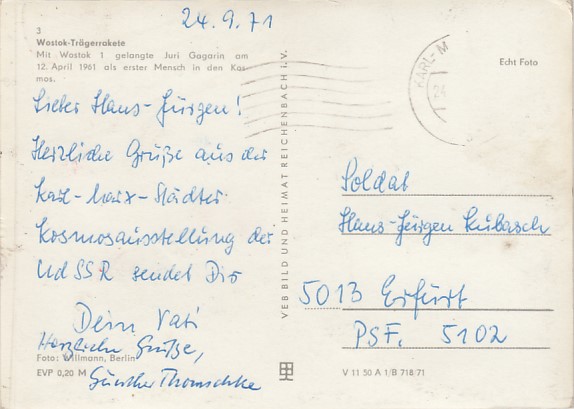 24.9.71
3
Wostok-Trägerrakete
Mit Wostok 1 gelangte Juri Gagarin am
12. April 1961 als erster Mensch in den Kos-
mos.
Lieber Hans-Jürgen!
Herzliche Grüße aus der
Karl-Marx-Städter
Kosmosausstellung der
UdSSR sendet Dir
Dein Vati
Herzliche Grüße,
Günther Thomschke
Foto: Willmann, Berlin
EVP 0,20 M
VEB BILD UND HEIMAT REICHENBACH i. V.
KARL-M
24
Echt Foto
Soldat
Hans-Jürgen Kubasch
5013 Erfurt
PSF. 5102
V 11 50 A 1/B 718/71